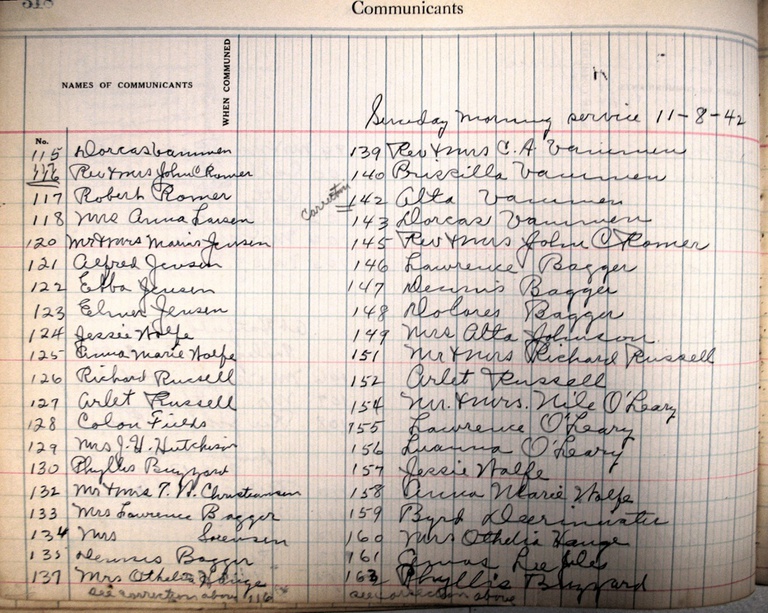 318
Communicants
NAMES OF COMMUNICANTS
WHEN COMMUNED
Sunday Morning service 11-8-42
No.
115 Dorcas Vammen
116 Rev & Mrs John C Romer
117 Robert Romer
118 Mrs Anna Larsen
120 Mr & Mrs Marius Jensen
121 Alfred Jenson
122 Ebba Jensen
123 Elmer Jensen
124 Jessie Wolfe
125 Anna Marie Wolfe
126 Richard Russell
127 Arlet Russell
128 Colon Fields
129 Mrs J. H. Hutchison
130 Phyllis Buzzard
132 Mr & Mrs T. W. Christiansen
133 Mrs Lawrence Bagger
134 Mrs Sorensen
135 Dennis Bagger
137 Mrs Othelia Hauge
see correction above 116
139 Rev & Mrs C. A. Vammen
140 Priscilla Vammen
correction
142 Alta Vammen
143 Dorcas Vammen
145 Rev & Mrs John C Romer
146 Lawrence Bagger
147 Dennis Bagger
148 Dolores Bagger
149 Mrs Alta Johnson
151 Mr & Mrs Richard Russell
152 Arlet Russell
154 Mr. & Mrs. Nile O'Leary
155 Lawrence O'Leary
156 Luanna O'Leary
157 Jessie Wolfe
158 Anna Marie Wolfe
159 Byrd
160 Mrs Othelia Hauge
161
163 Phyllis Buzzard
see correction above